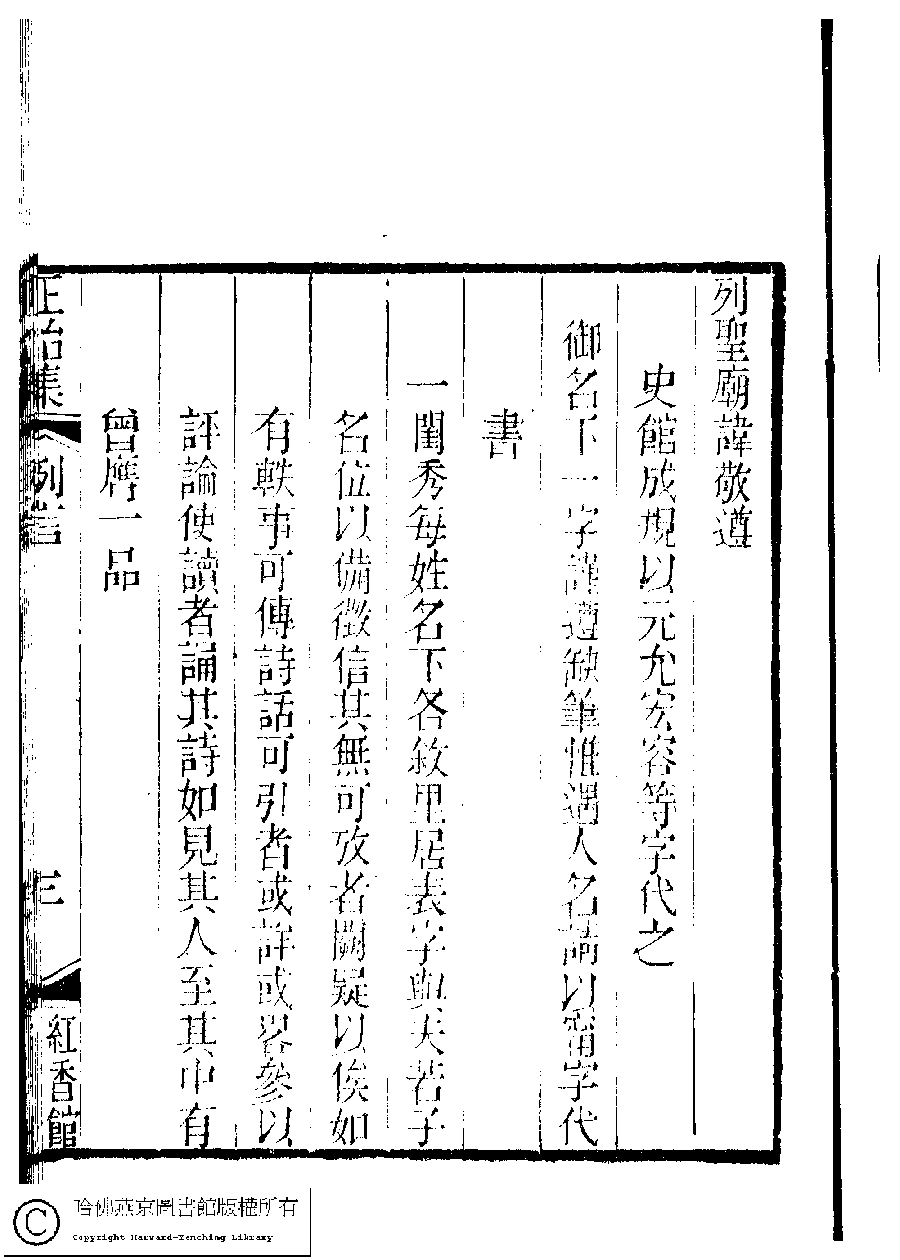 列聖廟諱敬遵
史館成規以元允宏容等字代之
御名下一字謹遵缺筆惟遇人名謹以甯字代
書
一閨秀每姓名下各敘里居表字與夫若子
名位以備徵信其無可攷者闕疑以俟如
有軼事可傳詩話可引者或詳或畧參以
評論使讀者誦其詩如見其人至其中有
曾膺一品
正始集
例言
三
紅香館
哈佛燕京圖書館版權所有
Copyright Harvard-Yenching Library